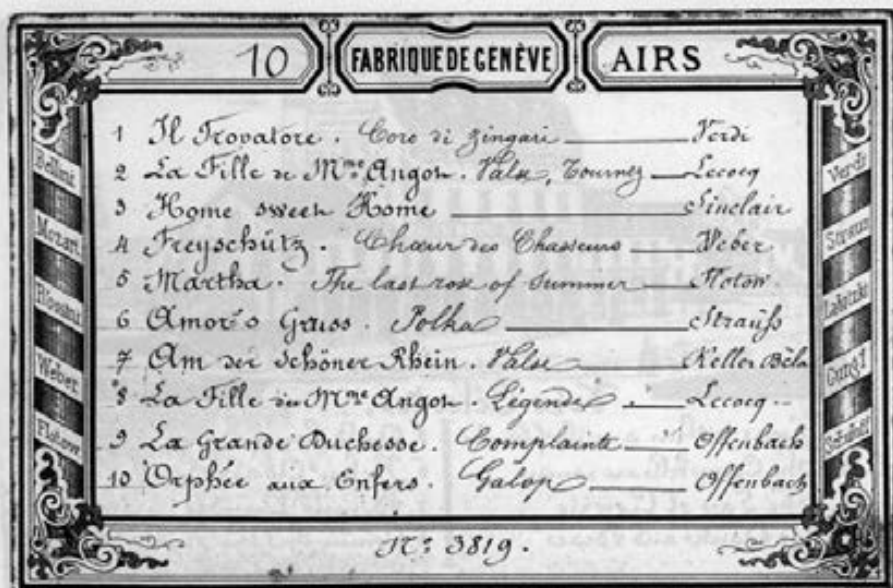 10 FABRIQUE DE GENÈVE AIRS
1 Il Trovatore. Coro di Zingari Verdi
2 La Fille de Mme Angot. Valse, Tournez Lecocq
3 Home sweet Home Sinclair
4 Freyschütz. Chœur des Chasseurs Weber
5 Martha. The last rose of Summer Flotow
6 Amor's Gruss. Polka Strauß
7 Am der schöner Rhein. Valse Keller Béla
8 La Fille de Mme Angot. Légende Lecocq
9 La Grande Duchesse. Complainte Offenbach
10 Orphée aux Enfers. Galop Offenbach
No 3819.
Bellini
Mozart
Rossini
Weber
Flotow
Verdi
Straus
Gung'l